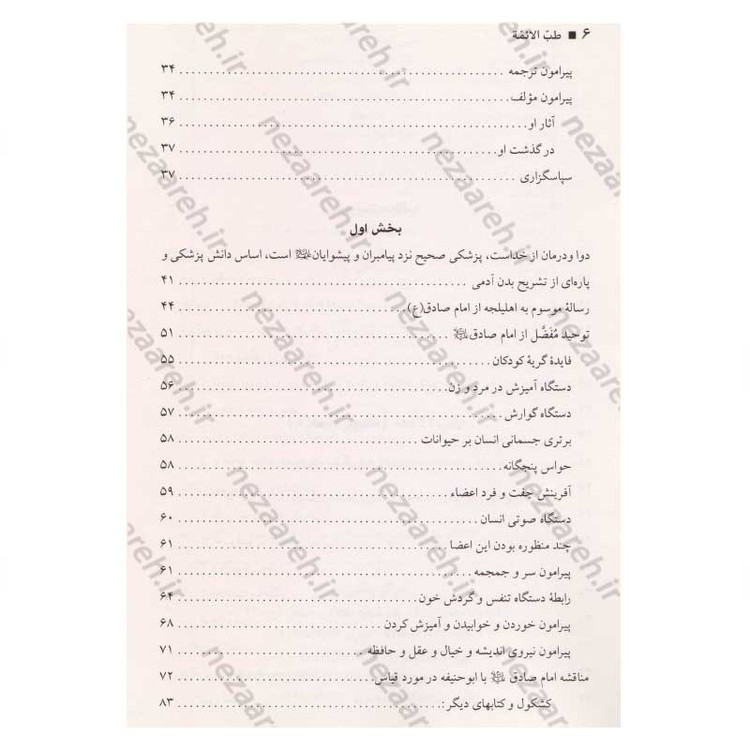 ۶ ■ طبّ الائمّة
پیرامون ترجمه ........ ۳۴
پیرامون مؤلف ........ ۳۴
آثار او ........ ۳۶
درگذشت او ........ ۳۷
سپاسگزاری ........ ۳۷
بخش اول
دوا ودرمان از خداست، پزشکی صحیح نزد پیامبران و پیشوایان﷩ است، اساس دانش پزشکی و
پاره‌ای از تشریح بدن آدمی ........ ۴۱
رسالهٔ موسوم به اهلیلجه از امام صادق(ع) ........ ۴۴
توحید مُفَضَّل از امام صادق ........ ۵۱
فایدهٔ گریهٔ کودکان ........ ۵۵
دستگاه آمیزش در مرد و زن ........ ۵۶
دستگاه گوارش ........ ۵۷
برتری جسمانی انسان بر حیوانات ........ ۵۸
حواس پنجگانه ........ ۵۸
آفرینش جفت و فرد اعضاء ........ ۵۹
دستگاه صوتی انسان ........ ۶۰
چند منظوره بودن این اعضا ........ ۶۱
پیرامون سر و جمجمه ........ ۶۱
رابطهٔ دستگاه تنفس و گردش خون ........ ۶۴
پیرامون خوردن و خوابیدن و آمیزش کردن ........ ۶۸
پیرامون نیروی اندیشه و خیال و عقل و حافظه ........ ۷۱
مناقشه امام صادق با ابوحنیفه در مورد قیاس ........ ۷۲
کشکول و کتابهای دیگر: ........ ۸۳
nezaareh.ir